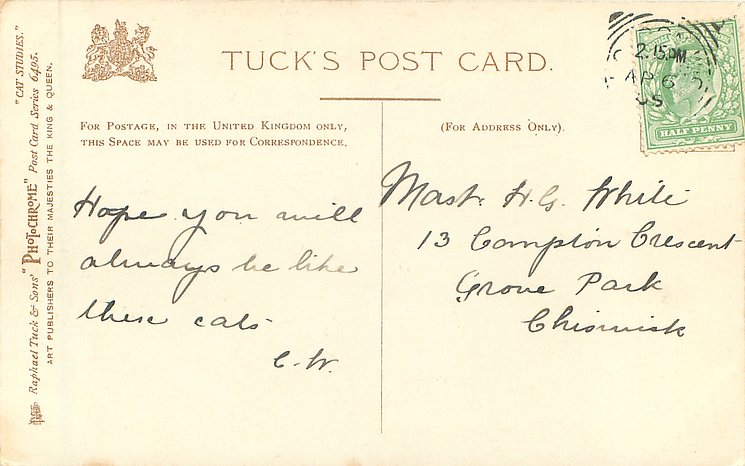 TUCK'S POST CARD.
FOR POSTAGE, IN THE UNITED KINGDOM ONLY,
THIS SPACE MAY BE USED FOR CORRESPONDENCE.
(FOR ADDRESS ONLY).
"CAT STUDIES."
Raphael Tuck & Sons' "PHOTOCHROME" Post Card Series 6495.
ART PUBLISHERS TO THEIR MAJESTIES THE KING & QUEEN.
2.15PM
AP 6
05
HALF PENNY
Hope you will
always be like
these cats
C.W.
Mast. H.G. White
13 Compton Crescent
Grove Park
Chiswick